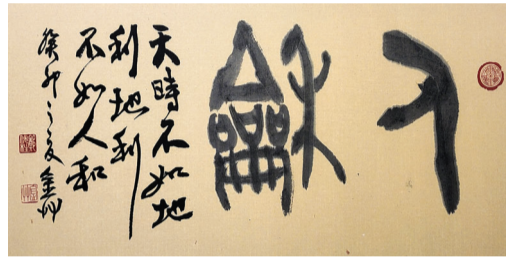 人龢
天時不如地
利地利
不如人和
癸卯之夏